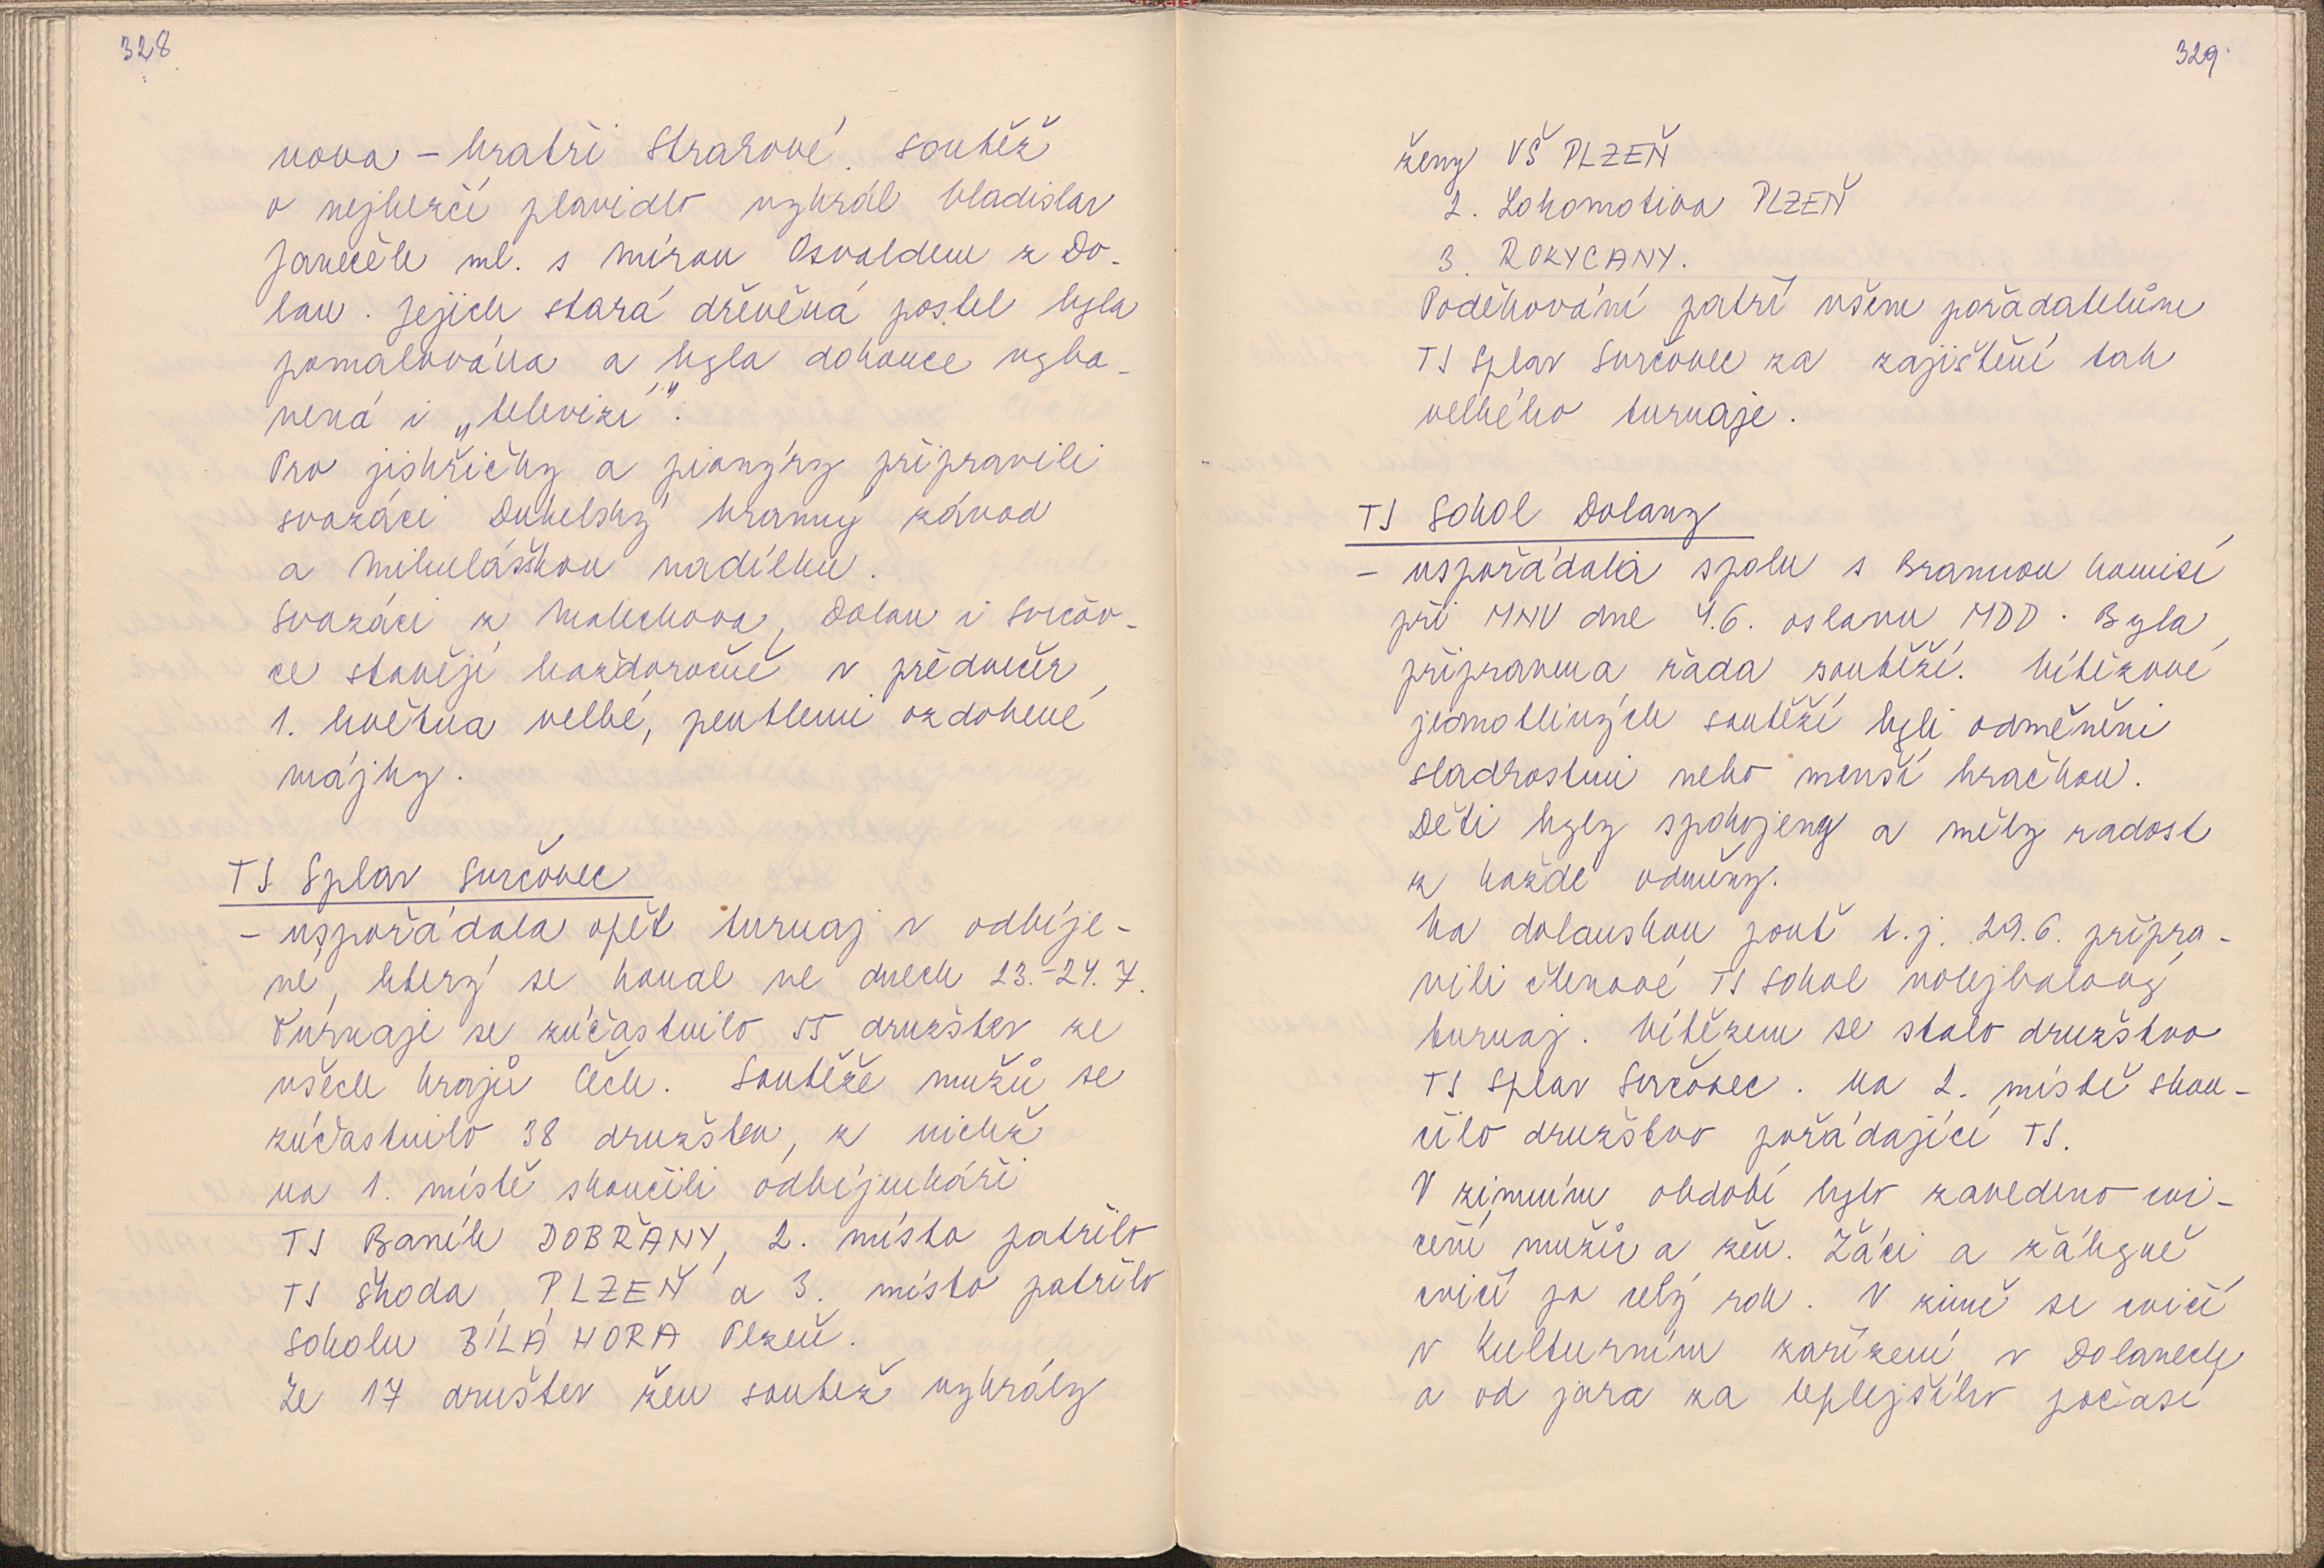 328
nova - bratři Strakové. Soutěž
o nejhezčí plavidlo vyhrál Vladislav
Janeček ml. s Mírou Osvaldem z Do-
lan. Jejich stará dřevěná postel byla
pomalována a byla dokonce vyba-
vená i „televizí".
Pro jiskřičky a pionýry připravili
svazáci Dukelský branný závod
a Mikulášskou nadílku.
Svazáci z Malechova, Dolan i Svrčov-
ce stavějí každoročně v předvečer
1. května velké, pentlemi ozdobené
májky.
TJ Splav Svrčovec
- uspořádala opět turnaj v odbíje-
né, který se konal ve dnech 23.-24. 7.
Turnaje se zúčastnilo 55 družstev ze
všech krajů Čech. Soutěže mužů se
zúčastnilo 38 družstev, z nichž
na 1. místě skončili odbíjenkáři
TJ Baník DOBŘANY, 2. místo patřilo
TJ Škoda PLZEŇ a 3. místo patřilo
Sokolu BÍLÁ HORA Plzeň.
Ze 17 društev žen soutěž vyhrály
329
ženy VŠ PLZEŇ
2. Lokomotiva PLZEŇ
3. ROKYCANY.
Poděkování patří všem pořadatelům
TJ Splav Svrčovec za zajištění tak
velkého turnaje.
TJ Sokol Dolany
- uspořádala spolu s Brannou komisí
při MNV dne 4.6. oslavu MDD. Byla
připravena řada soutěží. Vítězové
jednotlivých soutěží byli odměněni
sladkostmi nebo menší hračkou.
Děti byly spokojeny a měly radost
z každé odměny.
Na dolanskou pouť t.j. 29.6. připra-
vili členové TJ Sokol volejbalový
turnaj. Vítězem se stalo družstvo
TJ Splav Svrčovec. Na 2. místě skon-
čilo družstvo pořádající TJ.
V zimním období bylo zavedeno cvi-
čení mužů a žen. Žáci a žákyně
cvičí po celý rok. V zimě se cvičí
v Kulturním zařízení v Dolanech
a od jara za teplejšího počasí